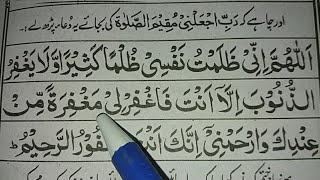 اور چاہے کہ رَبِّ اجْعَلْنِیْ مُقِیْمَ الصَّلٰوةِ کی بجائے یہ دُعاء پڑھ لے:۔
اَللّٰهُمَّ اِنِّیْ ظَلَمْتُ نَفْسِیْ ظُلْمًا كَثِیْرًا وَّلَا یَغْفِرُ
الذُّنُوْبَ اِلَّا اَنْتَ فَاغْفِرْلِیْ مَغْفِرَةً مِّنْ
عِنْدِكَ وَارْحَمْنِیْ اِنَّكَ اَنْتَ الْغَفُوْرُ الرَّحِیْمُ ط